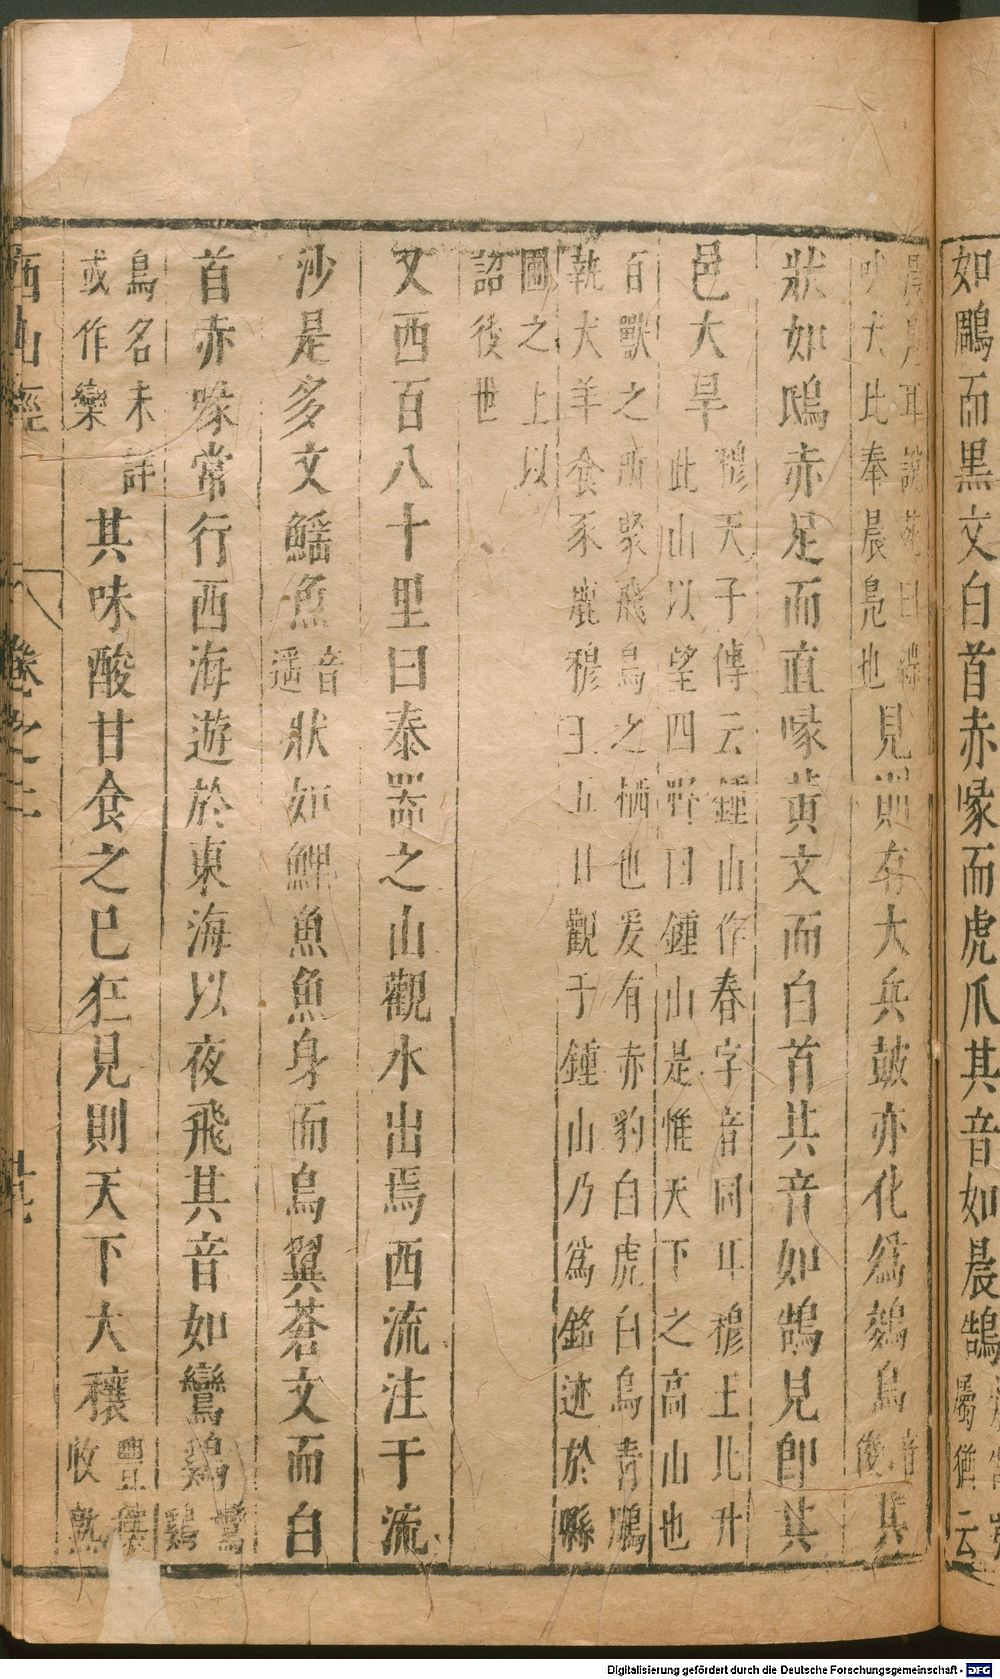 如鵰而黑文白首赤喙而虎爪其音如晨鵠
屬猶云
晨鳧耳說苑曰
吠犬比奉晨鳧也
見則有大兵鼓亦化為鵕鳥
音
俊
其
狀如鴟赤足而直喙黃文而白首其音如鵠見即其
邑大旱
穆天子傳云鍾山作舂字音同耳穆王北升
此山以望四野曰鍾山是惟天下之高山也
百獸之所聚飛鳥之栖也爰有赤豹白虎白鳥青鵰
執犬羊食豕鹿穆王五日觀于鍾山乃為銘迹於縣
圃之上以
詔後世
又西百八十里曰泰器之山觀水出焉西流注于流
沙是多文鰩魚
音
遥
狀如鯉魚魚身而鳥翼蒼文而白
首赤喙常行西海遊於東海以夜飛其音如鸞鷄
鸞
鷄
鳥名未詳
或作欒
其味酸甘食之已狂見則天下大穰
豐穰
收熟
西山經
卷之二